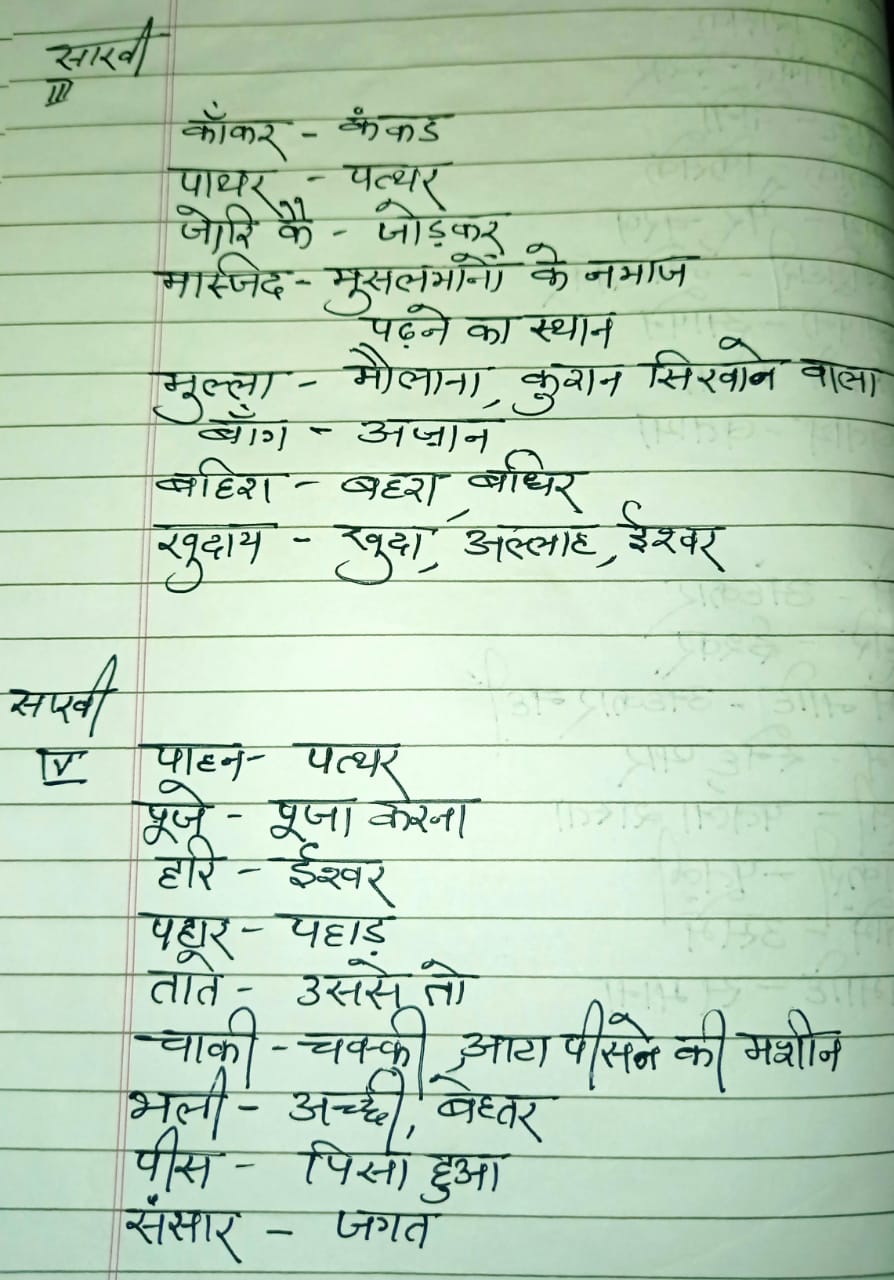 साखी
III
काँकर - कंकड
पाथर - पत्थर
जोरि कै - जोड़कर
मस्जिद - मुसलमानों के नमाज
पढ़ने का स्थान
मुल्ला - मौलाना, कुरान सिखाने वाला
बाँग - अज़ान
बहिरा - बहरा, बधिर
खुदाय - खुदा, अल्लाह, ईश्वर
साखी
IV
पाहन - पत्थर
पूजे - पूजा करना
हरि - ईश्वर
पहार - पहाड़
ताते - उससे तो
चाकी - चक्की, आटा पीसने की मशीन
भली - अच्छी, बेहतर
पीस - पिसा हुआ
संसार - जगत